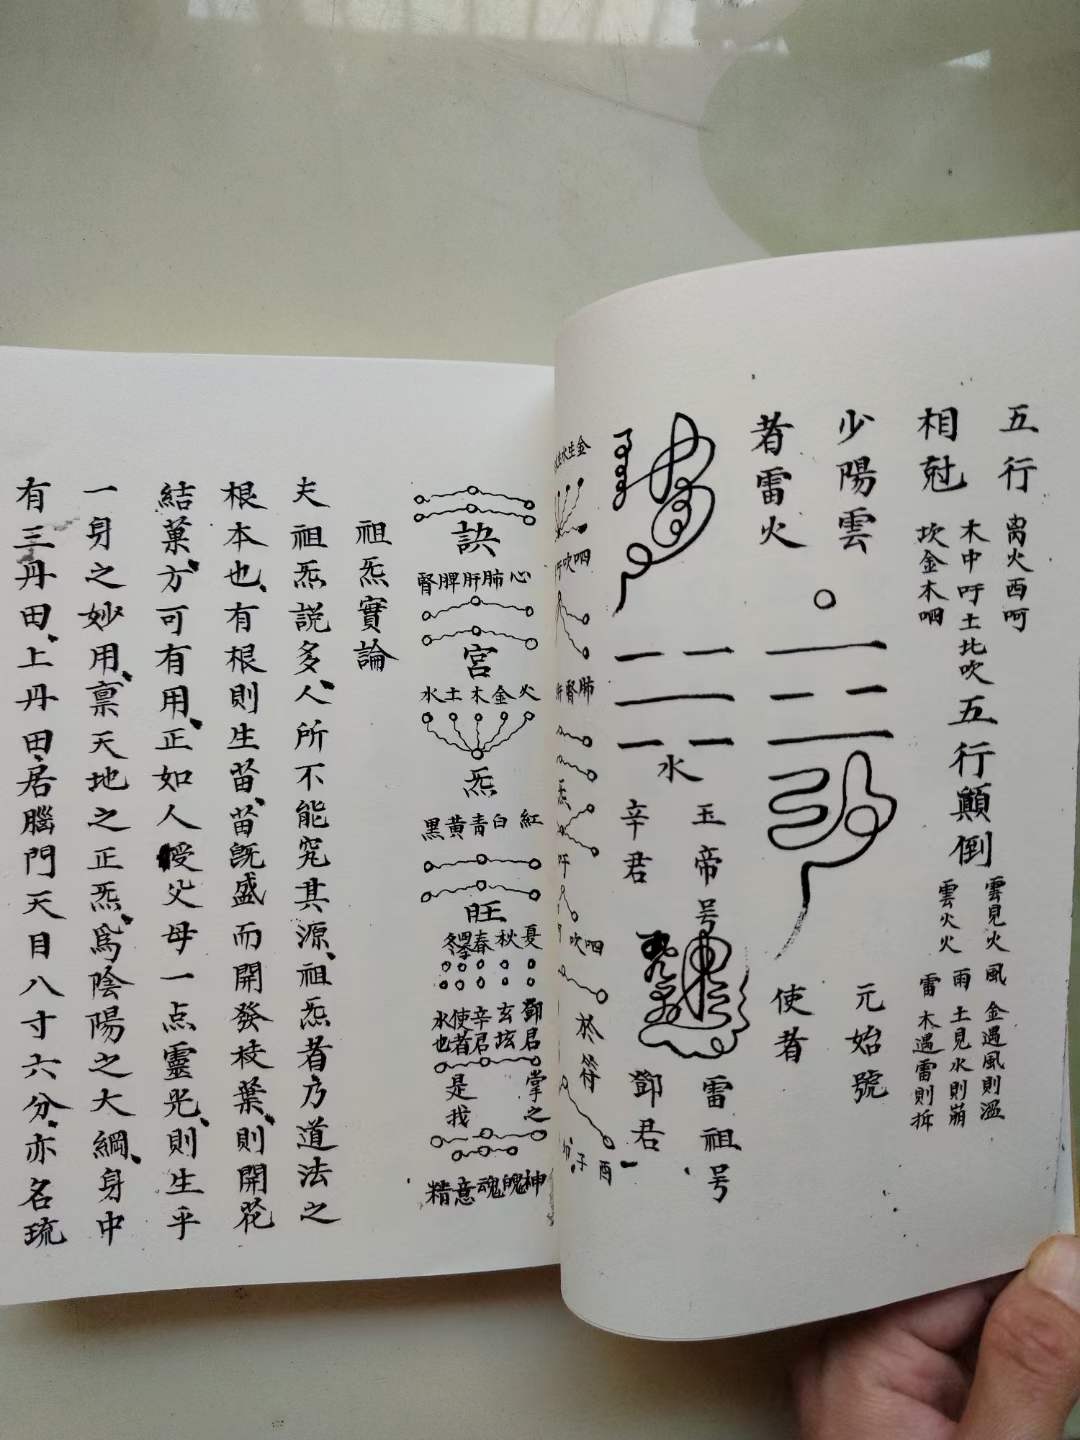 五行
相尅
离火西呵
木中吁土北吹
坎金本呬
五行顛倒
雲見火 風 金遇風則溫
雲火火 雨 土見水則崩
雷 木遇雷則拆
少陽雲
者雷火
元始號
使者
水
玉帝号
辛君
雷祖号
鄧君
金生水生木
呬吹吁
肺腎肝
炁
吁
呬吹
於符
酉子
訣
心肺肝脾腎
宮
火金木土水
炁
紅白青黃黑
旺
夏秋春四季冬
鄧君玄坛辛君使者水也
掌之
是找
神魄魂意精
祖炁實論
夫祖炁説多人、所不能究其源、祖炁者乃道法之
根本也、有根則生苗、苗既盛而開發枝葉、則開花
結菓、方可有用、正如人授父母一点靈光、則生乎
一身之妙用、禀天地之正炁、爲陰陽之大綱、身中
有三丹田、上丹田、居腦門天目八寸六分、亦名琉